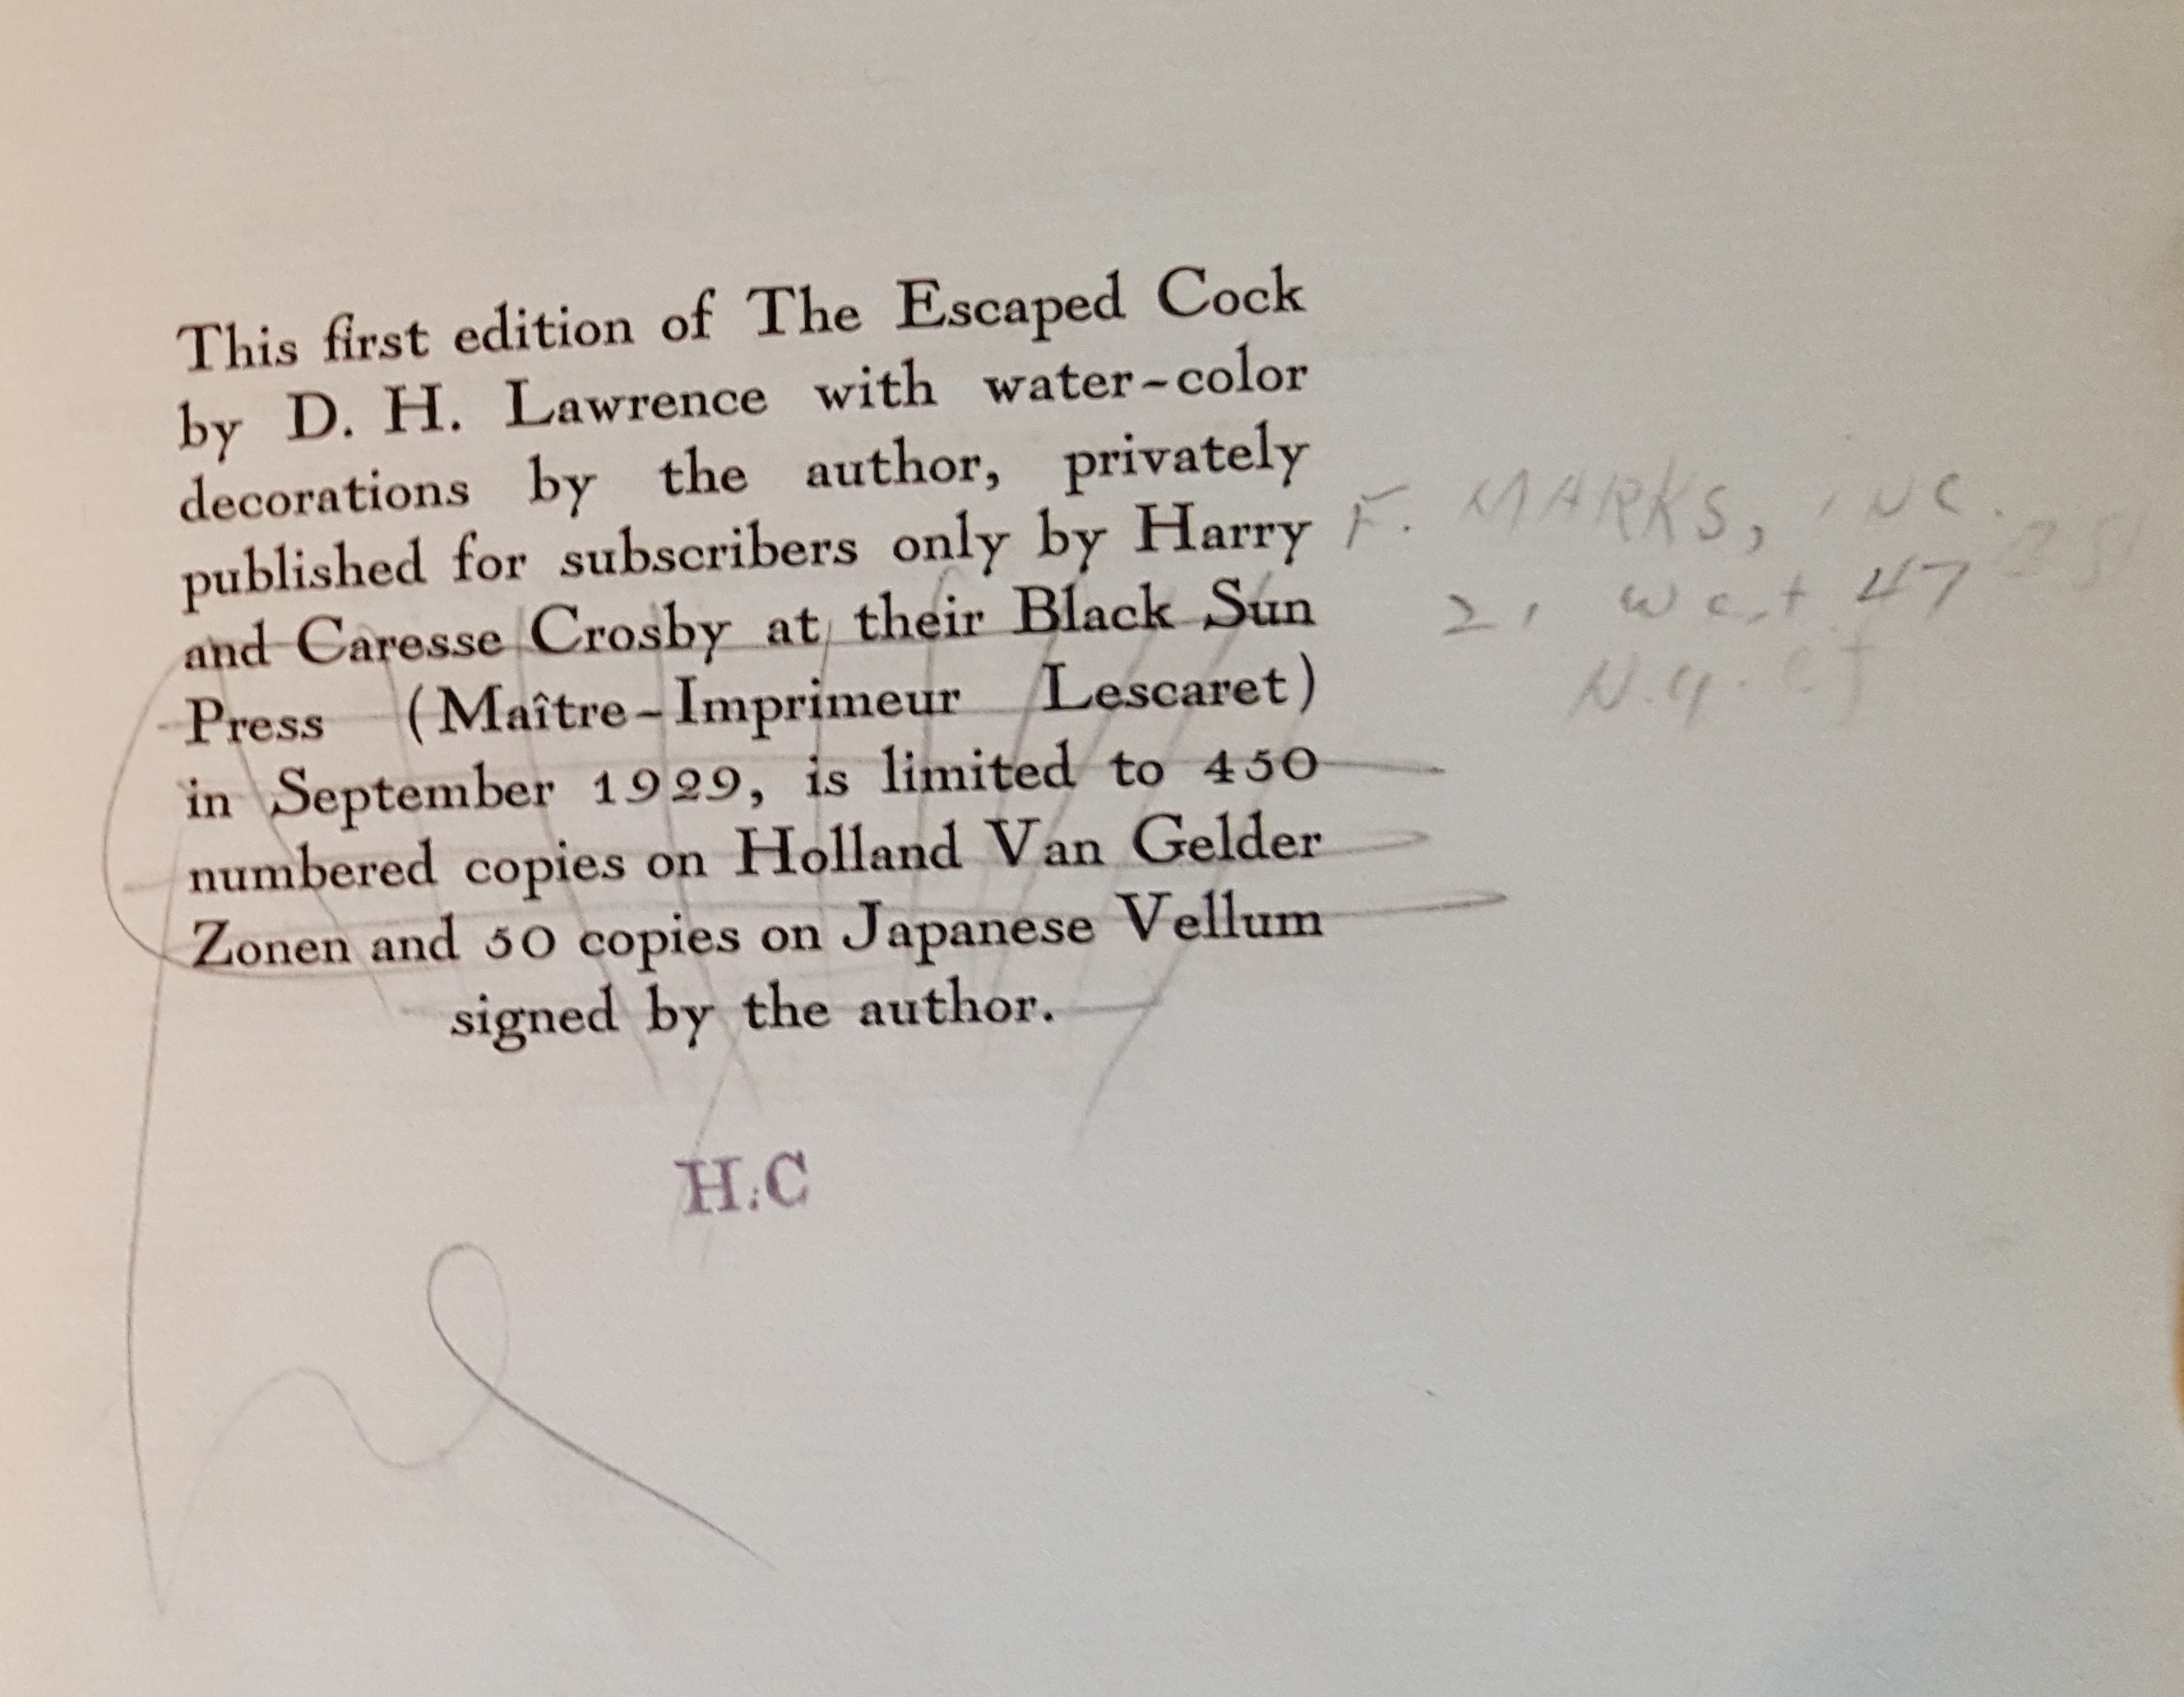 This first edition of The Escaped Cock
by D. H. Lawrence with water-color
decorations by the author, privately
published for subscribers only by Harry F. MARKS, INC.
and Caresse Crosby at their Black Sun
Press (Maître-Imprimeur Lescaret)
in September 1929, is limited to 450
numbered copies on Holland Van Gelder
Zonen and 50 copies on Japanese Vellum
signed by the author.
H.C
West 47
N.Y.